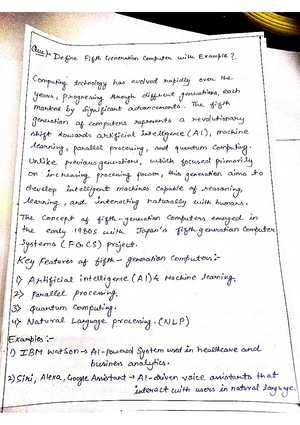 Que:- Define Fifth Generation Computer with Example?
Computing technology has evolved rapidly over the
years, progressing through different generations, each
marked by significant advancements. The fifth
generation of computers represents a revolutionary
shift towards artificial intelligence (AI), machine
learning, parallel processing, and quantum computing.
Unlike previous generations, which focused primarily
on increasing processing power, this generation aims to
develop intelligent machines capable of reasoning,
learning, and interacting naturally with humans.
The Concept of fifth-generation Computers emerged in
the early 1980s with Japan's fifth generation Computer
Systems (FGCS) project.
Key Features of fifth-generation Computers:-
1) Artificial intelligence (AI) & Machine learning.
2) Parallel processing.
3) Quantum Computing.
4) Natural Language processing. (NLP)
Examples:-
1) IBM Watson → AI-powered System used in healthcare and
business analytics.
2) Siri, Alexa, Google Assistant → AI-driven voice assistants that
interact with users in natural language.